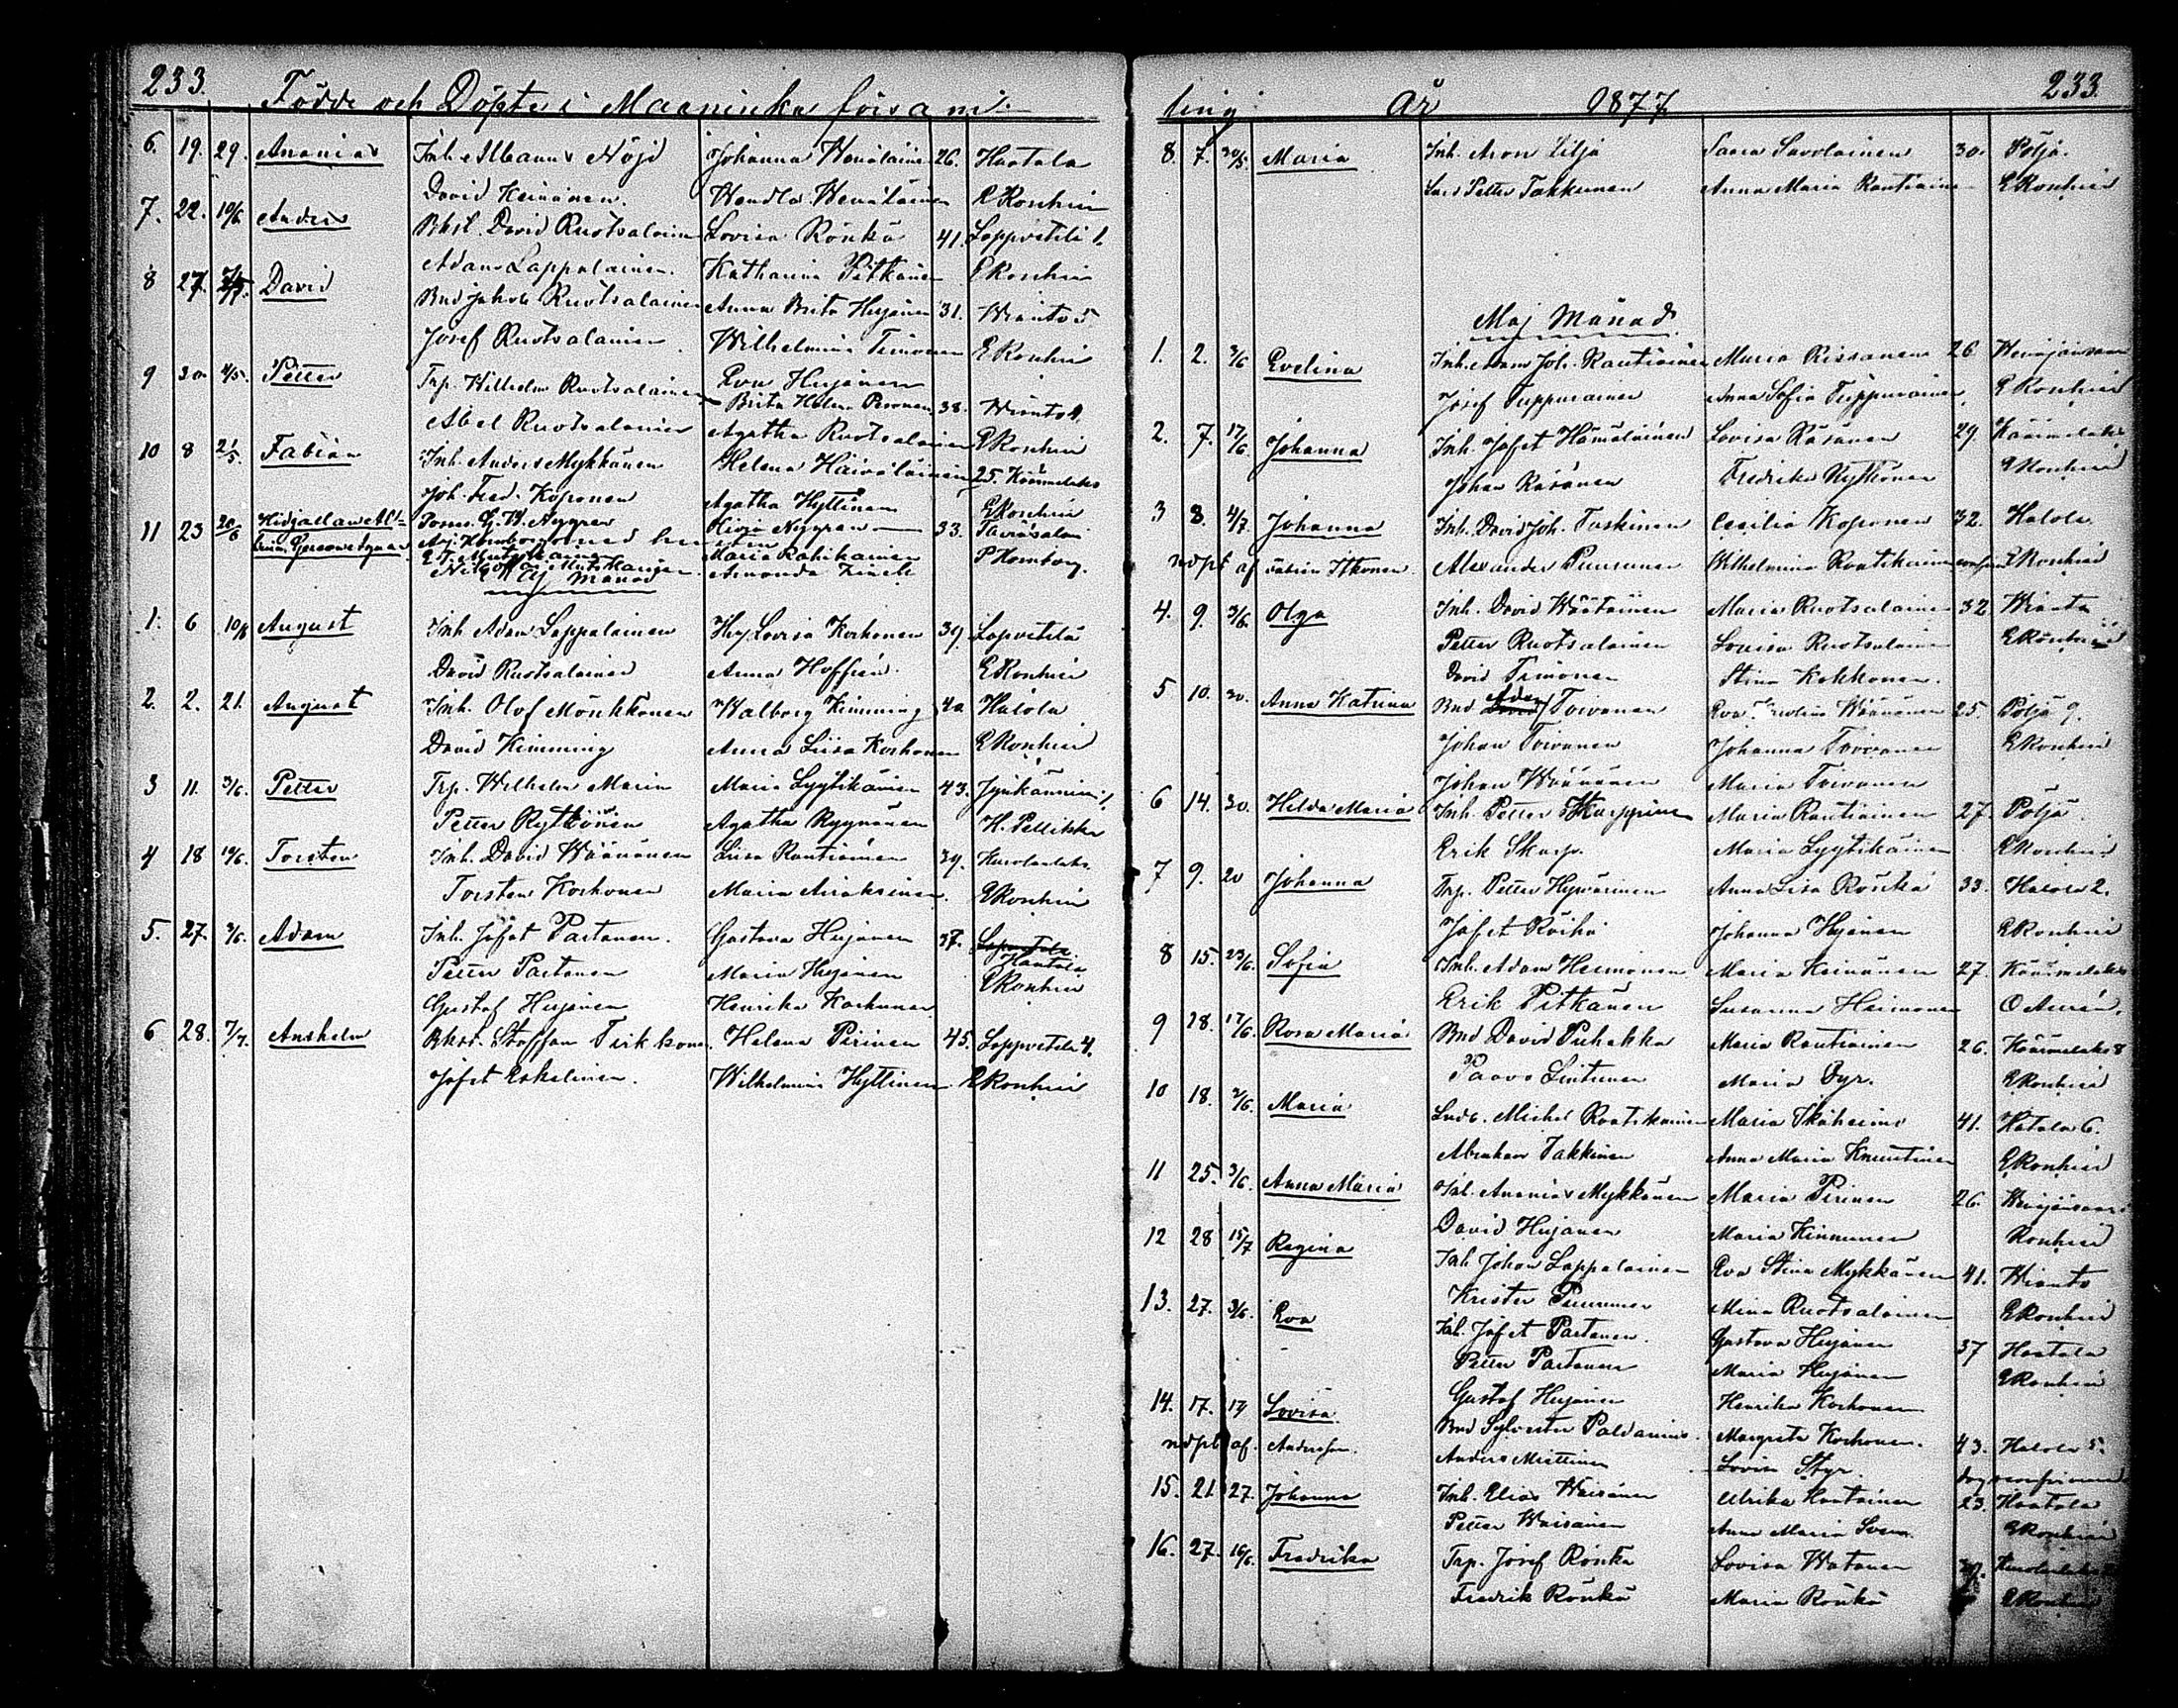 233. Födde och Döpte i Maaninka försam-
6. 19. 29. Ananias Inh. Albanus Höjd Johanna Wenäläinen 26. Haatala
David Heinänen. Wendla Wenäläinen E Ronkin
7. 22. 10/6 Anders Bkst. David Ruotsalainen Lovisa Rönkä 41. Lappvetelä 1.
Adam Lappalainen. Katharina Pitkänen E Ronkin
8 27. David Bnd Jakob Ruotsalainen Anna Brita Hujanen 31. Wianto 5
Josef Ruotsalainen Wilhelmina Timonen E Ronkin
9 30. 4/5. Petter Trp. Wilhelm Ruotsalainen Eva Hujanen
Brita Helena Peronen 38. Wianto
Abel Ruotsalainen Agatha Ruotsalainen E Ronkin
10 8 21/5. Fabian Inh. Anders Mykkänen Helena Häiväläinen 25. Käärmelaks
Joh. Fred. Koponen Agatha Hyttinen E Ronkin
11 23 20/6 G. W. Nygren Nygren 33. Tavinsalmi
Maria Rahikainen P Homborg.
Amanda
Maj Månad
1. 6 10/6 August Inh Adam Lappalainen Hu Lovisa Korhonen 39. Lapvetelä
David Ruotsalainen Anna Hoffrén E Ronkin
2. 2. 21. August Inh. Olof Mönkkönen Walborg Kimming 40 Halola
David Kimming Anna Liisa Korhonen E Ronkin
3 11. 3/6. Petter Trp. Wilhelm Marin Maria Lyytikäinen 43. Jynkänniemi
Petter Rytkönen Agatha Ryynänen H. Pellikka
4 18 10/6. Torsten Inh. David Wäänänen Liisa Rautiainen 39. Kurolanlaks.
Torsten Korhonen Maria Airaksinen. E Ronkin
5. 27. 3/6. Adam Inh. Jafet Partanen. Gustava Hujanen 37. Haatala
Petter Partanen Maria Hujanen E Ronkin
Gustaf Hujanen Henrika Korhonen
6 28. 7/7. Anshelm Bkst. Staffan Tirkkonen. Helena Pirinen 45. Lappvetelä 4.
Jafet Eskelinen. Wilhelmina Hyttinen E Ronkin
ling År 1877. 233.
8. 7. 20/5. Maria Inh. Aron Lilja Saara Savolainen 30. Pöljä.
Petter Takkunen Anna Maria Rautiainen E Ronkin
Maj Månad.
1. 2. 3/6 Evelina Inh. Adam Joh. Rautiainen Maria Rissanen 26 Wenäjänsaari
Josef Tuppurainen Anna Sofia Tuppurainen E Ronkin
2. 7. 17/6 Johanna Inh. Jafet Hämäläinen Lovisa Räsänen 29. Käärmelaks
Johan Räsänen Fredrika Rytkönen E Ronkin
3 8. 4/7. Johanna Inh. David Joh. Tuskinen Cecilia Koponen 32. Halola.
nödpt af Fabian Itkonen. Alexander Punnonen Wilhelmina Raatikainen E Ronkin
4. 9. 3/6. Olga Inh. David Wäätäinen Maria Ruotsalainen 32 Wianta
Petter Ruotsalainen Lovisa Ruotsalainen E Ronkin
David Timonen Stina Kokkonen.
5 10. 20. Anna Katrina Bnd Adam Toivanen Eva Wäänänen 25. Pöljä 9.
Johan Toivanen Johanna Toivanen E Ronkin
Johan Wäänänen Maria Toivanen
6 14. 30. Hilda Maria Inh. Petter Skarppinen Maria Rautiainen 27. Pöljä
Erik Skarp. Maria Lyytikäinen E Ronkin
7 9. 20 Johanna Trp. Petter Hyvärinen Anna Lisa Rönkä 33. Halola 2.
Jafet Räihä Johanna Hujanen E Ronkin
8 15. 23/6. Sofia Inh. Adam Heinonen Maria Keinänen 27. Käärmelaks
Erik Pitkänen Susanna Heinonen O Aurén.
9 28. 17/6. Rosa Maria Bnd David Puhakka Maria Rautiainen 26. Käärmelaks 8
Paavo Lintunen Maria Dyr. E Ronkin
10 18. 3/6. Maria Michel Raatikainen Maria Ikäheimo 41. Hatala 6.
Abraham Takkinen Anna Maria Knuutinen E Ronkin
11 25. 3/6. Anna Maria Inh. Ananias Mykkänen Maria Pirinen 26. Wenäjänsaari
David Hujanen Maria Kinnunen Ronkin
12 28 15/7 Regina Inh Johan Lappalainen Eva Stina Mykkänen 41. Wianto
Krister Punnonen Mina Ruotsalainen E Ronkin
13. 27. 3/6. Eva Inh. Jafet Partanen. Gustava Hujanen 37 Haatala
Petter Partanen Maria Hujanen E Ronkin
Gustaf Hujanen Henrika Korhonen
14. 17. 19 Lovisa Bnd Sylvester Paldanius. Margreta Korhonen. 43. Halola 5.
nödpt af. Andersson. Anders Miettinen Lovisa Styr.
15. 21 27. Johanna Inh. Elias Waisänen Ulrika Hautainen 23. Haatala
Petter Waisänen Anna Maria E Ronkin
16. 27. 10/6. Fredrika Trp. Josef Rönkä Lovisa Watanen Kurolanlaks
Fredrik Rönkä Maria Rönkä E Ronkin